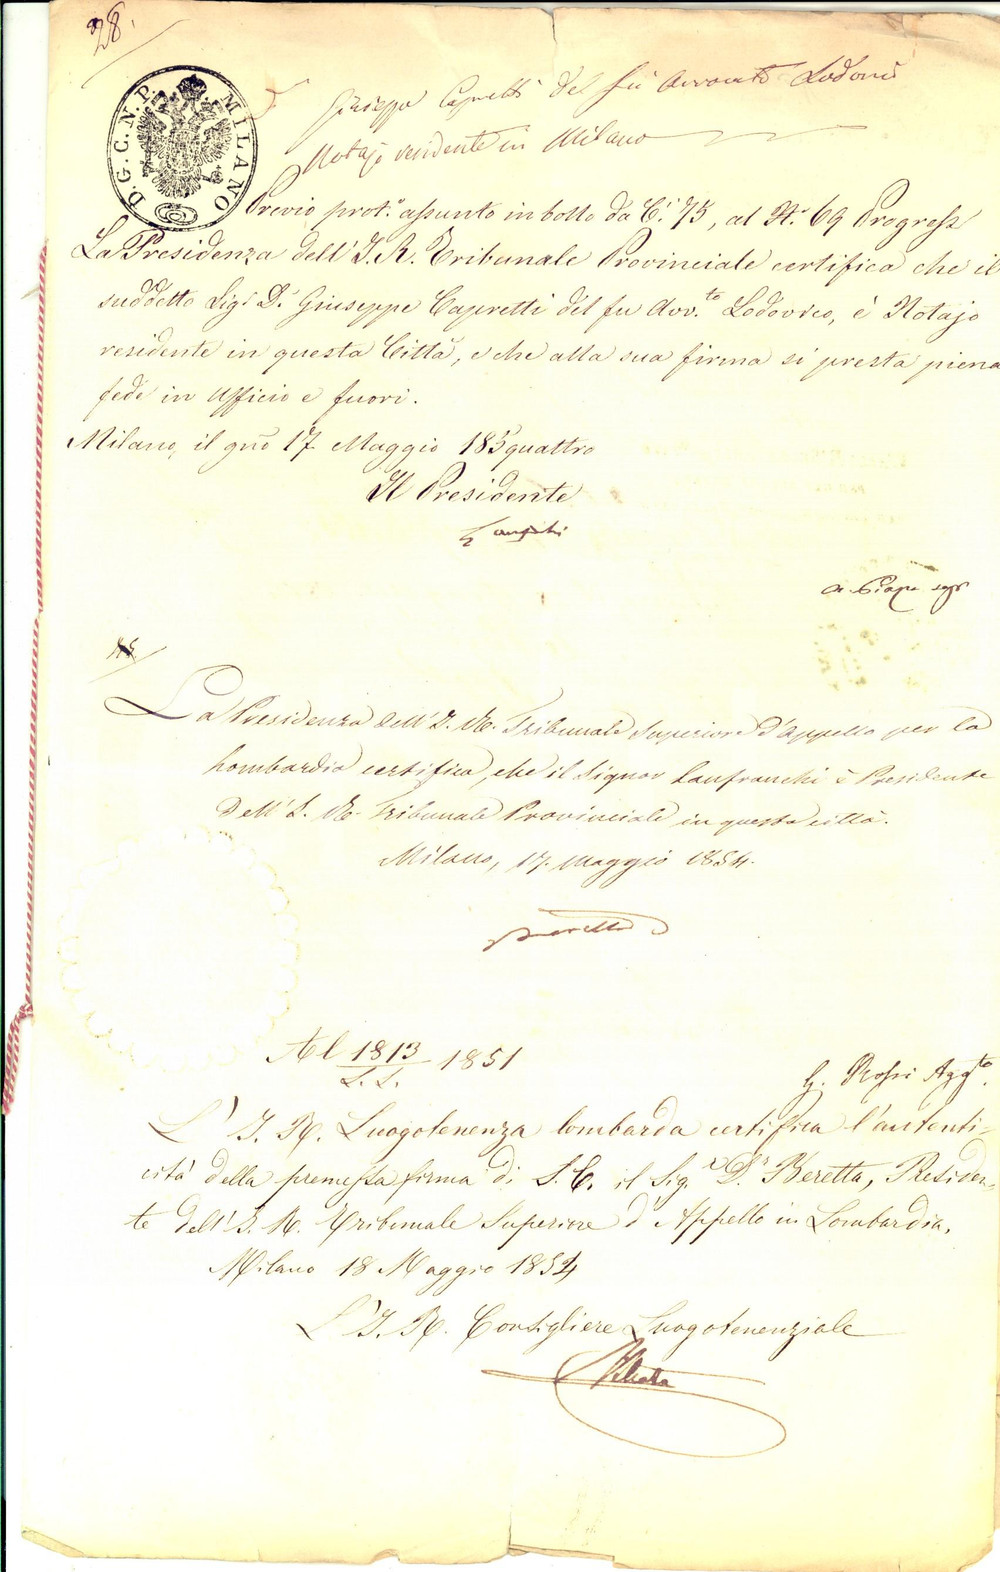 28.
D. G. C. N. P. MILANO
Giuseppe Capretti del fu Avvocato Lodovico
Notajo residente in Milano
Previo prot.º assunto in bollo da C.i 75, al N.º 69 Progress.
La Presidenza dell'I. R. Tribunale Provinciale certifica che il
suddetto Sig.r D.r Giuseppe Capretti del fu Avv.to Lodovico, è Notajo
residente in questa Città, e che alla sua firma si presta piena
fede in Ufficio e fuori.
Milano, il gno 17 Maggio 185quattro
Il Presidente
Lanfranchi
La Presidenza dell'I. R. Tribunale Superiore d'Appello per la
Lombardia certifica, che il Signor Lanfranchi è Presidente
dell'I. R. Tribunale Provinciale in questa città.
Milano, 17. Maggio 1854.
Beretta
Al 1813 1851
L. L.
G. Rossi Agg.to
L'I. R. Luogotenenza lombarda certifica l'autenti-
cità della premessa firma di S. E. il Sig.r D.r Beretta, Presiden-
te dell'I. R. Tribunale Superiore d'Appello in Lombardia.
Milano 18 Maggio 1854
L'I. R. Consigliere Luogotenenziale